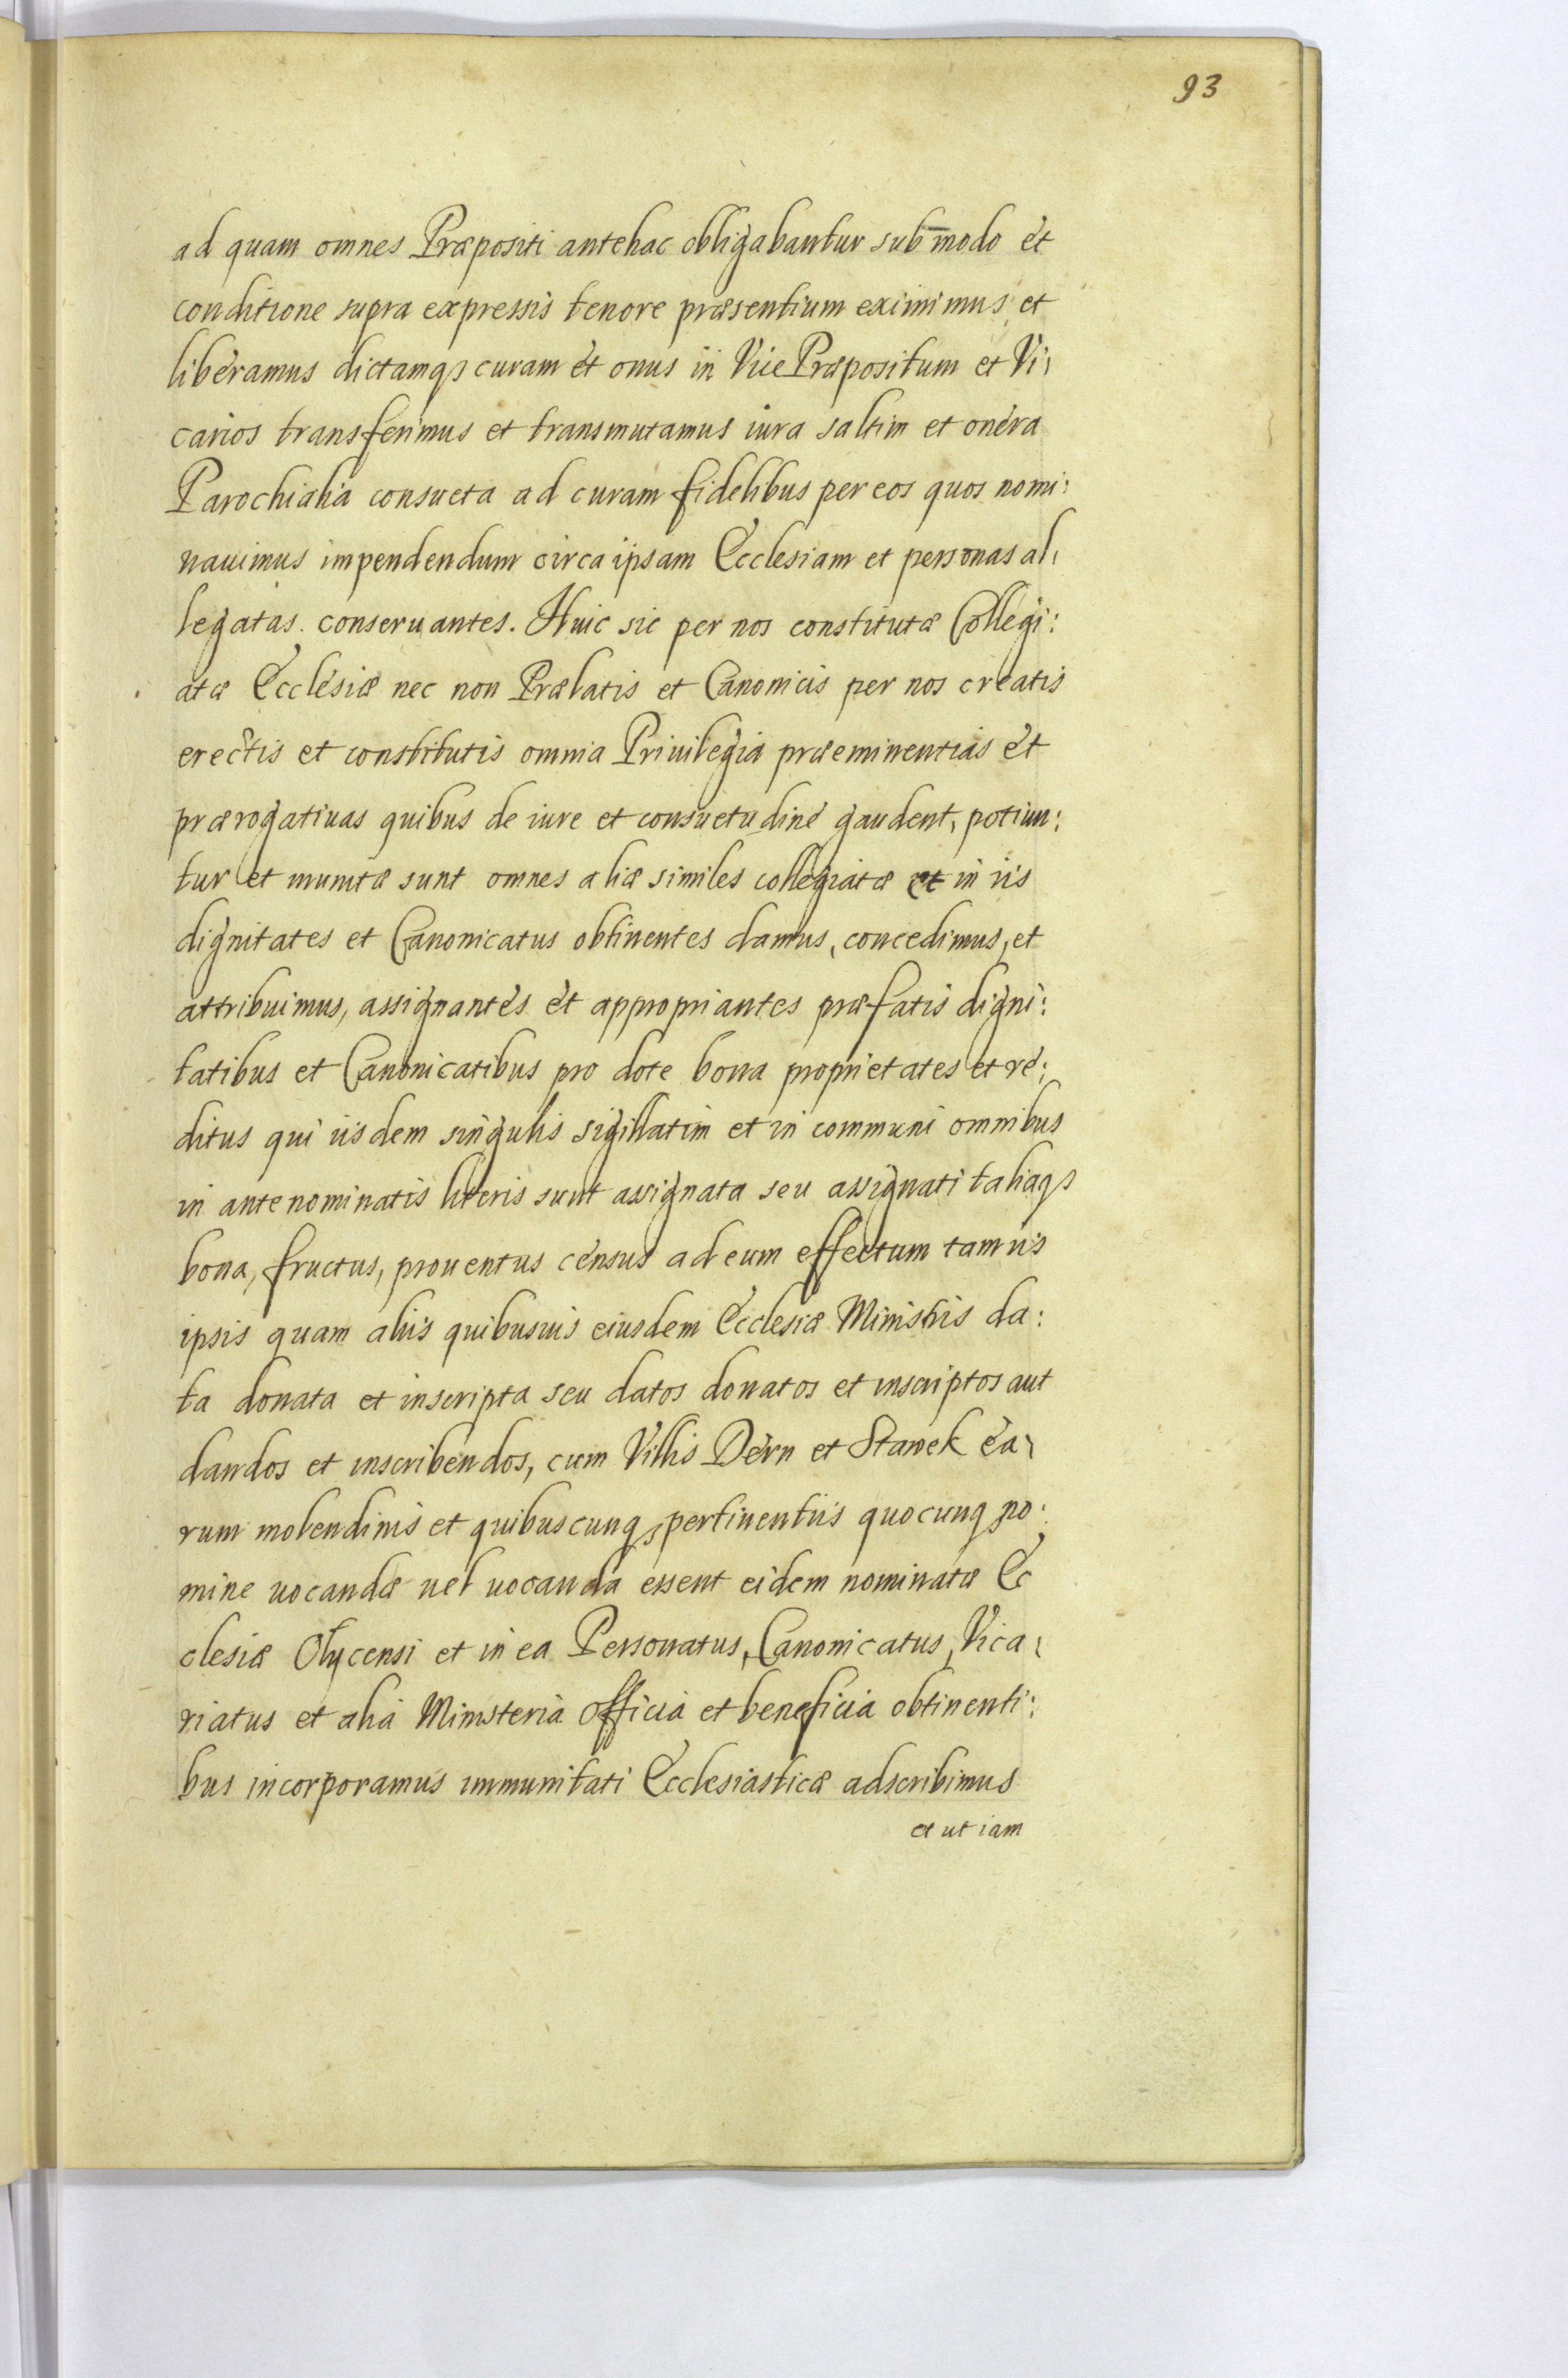 93
ad quam omnes Præpositi antehac obligabantur sub modo et
conditione supra expressis tenore præsentium eximimus et
liberamus dictamqs curam et onus in Vice Præpositum et Vi:
carios transferimus et transmutamus iura saltim et onera
Parochialia consueta ad curam fidelibus per eos quos nomi:
nauimus impendendum circa ipsam Ecclesiam et personas al:
legatas. conseruantes. Huic sic per nos constitutæ Collegi:
atæ Ecclesiæ nec non Prælatis et Canonicis per nos creatis
erectis et constitutis omnia Priuilegia præeminentias et
prærogatiuas quibus de iure et consuetudine gaudent, potiun:
tur et munitæ sunt omnes aliæ similes collegiatæ et in iis
dignitates et Canonicatus obtinentes damus, concedimus, et
attribuimus, assignantes et appropriantes præfatis digni:
tatibus et Canonicatibus pro dote bona proprietates et re:
ditus qui iisdem singulis sigillatim et in communi omnibus
in antenominatis literis sunt assignata seu assignati taliaqs
bona, fructus, prouentus census ad eum effectum tam iis
ipsis quam aliis quibusuis eiusdem Ecclesiæ Ministris da:
ta donata et inscripta seu datos donatos et inscriptos aut
dandos et inscribendos, cum Villis Dern et Stawek ea:
rum molendinis et quibuscunqs pertinentiis quocunqs no:
mine uocandæ uel uocanda essent eidem nominatæ Ec
clesiæ Olycensi et in ea Personatus, Canonicatus, Vica:
riatus et alia Ministeria Officia et beneficia obtinenti:
bus incorporamus immunitati Ecclesiasticæ adscribimus
et ut iam